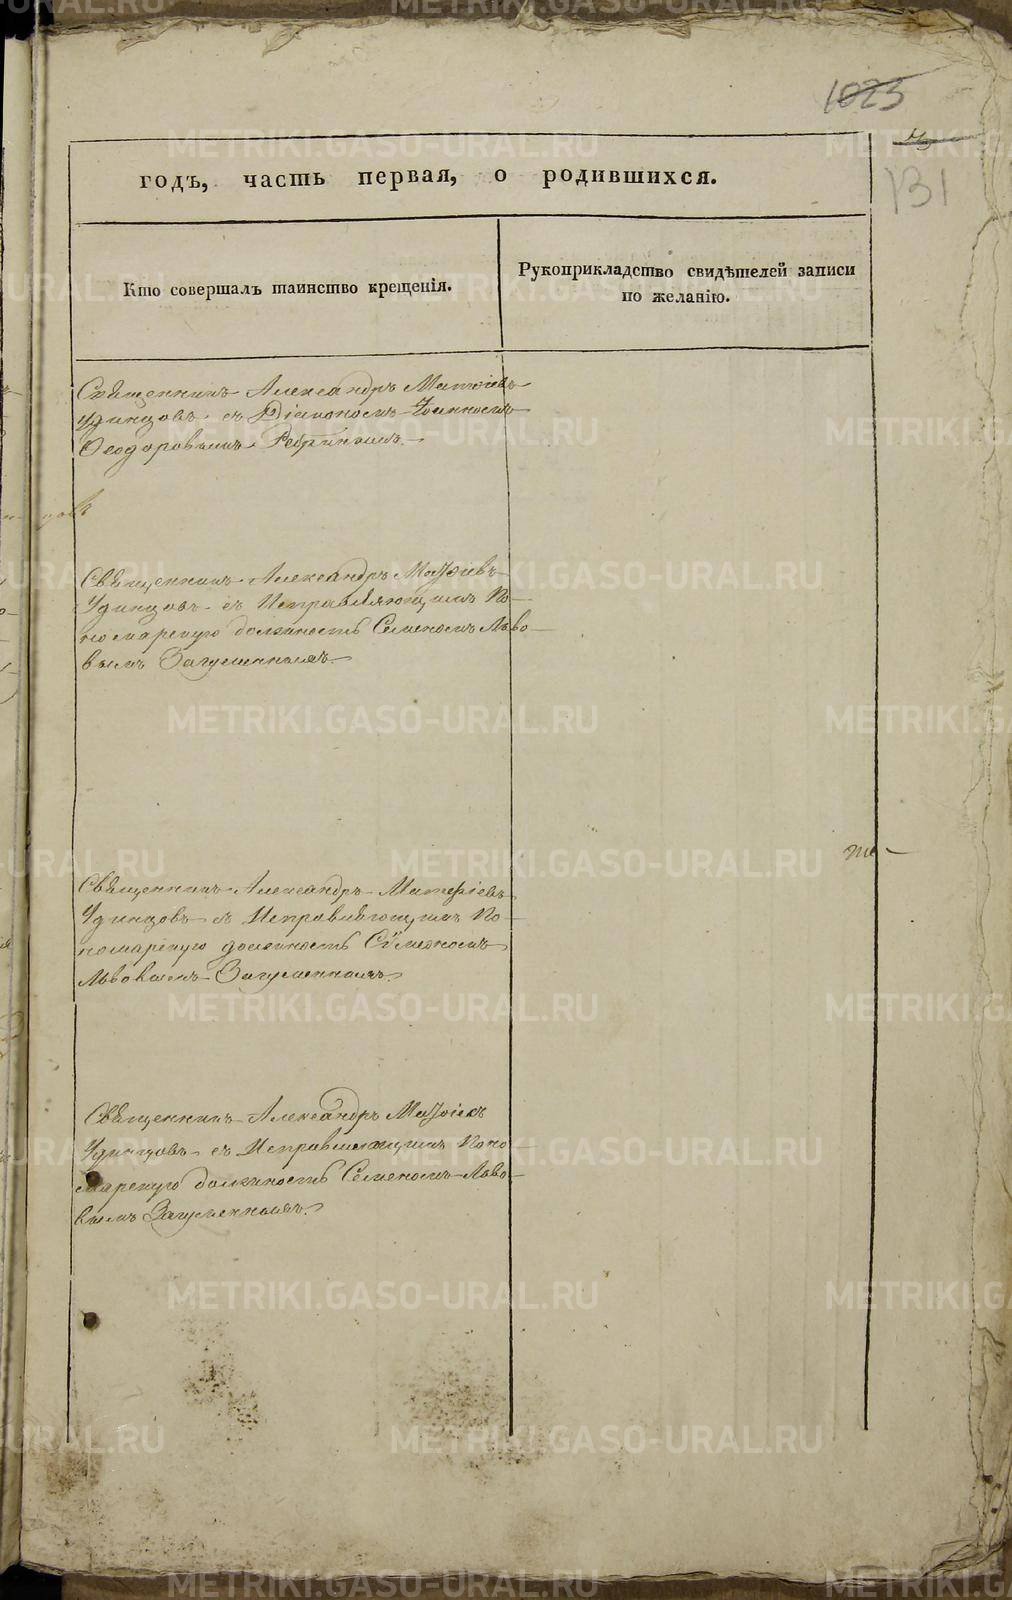 1023
131
годъ, часть первая, о родившихся.
Кто совершалъ таинство крещенія.
Рукоприкладство свидѣтелей записи
по желанію.
Священникъ Александръ Матѳіевъ
Удинцовъ съ Діакономъ Іоанномъ
Ѳеодоровымъ Ребринымъ.
Священникъ Александръ Матѳіевъ
Удинцовъ съ Исправляющимъ По-
номарскую должность Семеномъ Льво-
вымъ Загуменнымъ.
Священникъ Александръ Матѳіевъ
Удинцовъ съ Исправляющимъ По-
номарскую должность Сѵмеономъ
Львовымъ Загуменнымъ.
Священникъ Александръ Матѳіевъ
Удинцовъ съ Исправляющимъ Поно-
марскую должность Семеномъ Льво-
вымъ Загуменнымъ.
METRIKI.GASO-URAL.RU